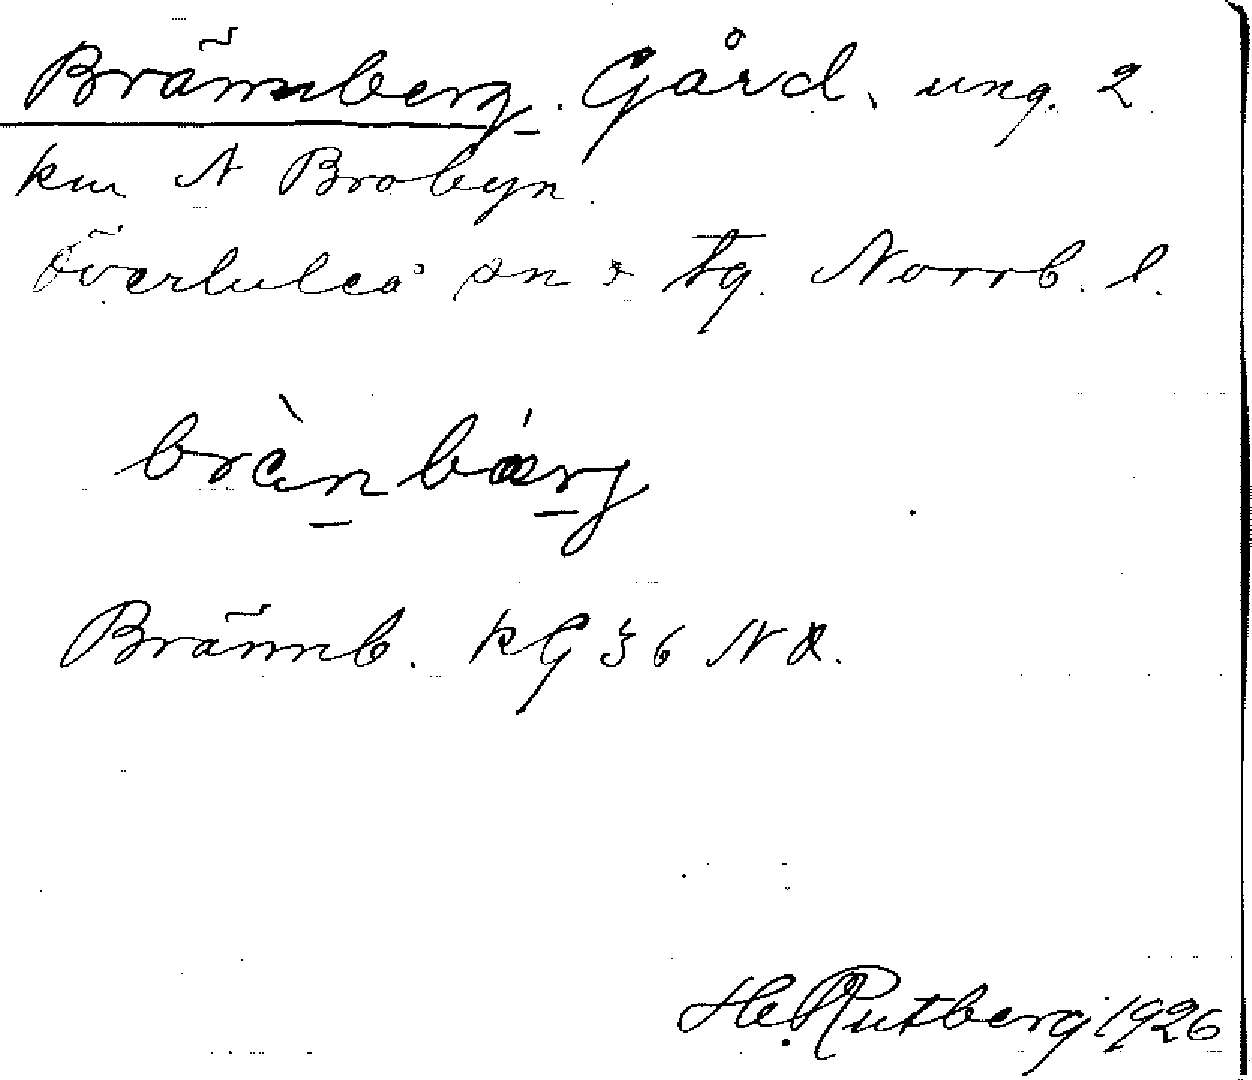 Brännberg. Gård, ung. 2
km N Brobyn.
Överluleå sn o tg. Norrb. l.
brànbǽrg
Brännb. KG 36 NX.
He. Rutberg 1926